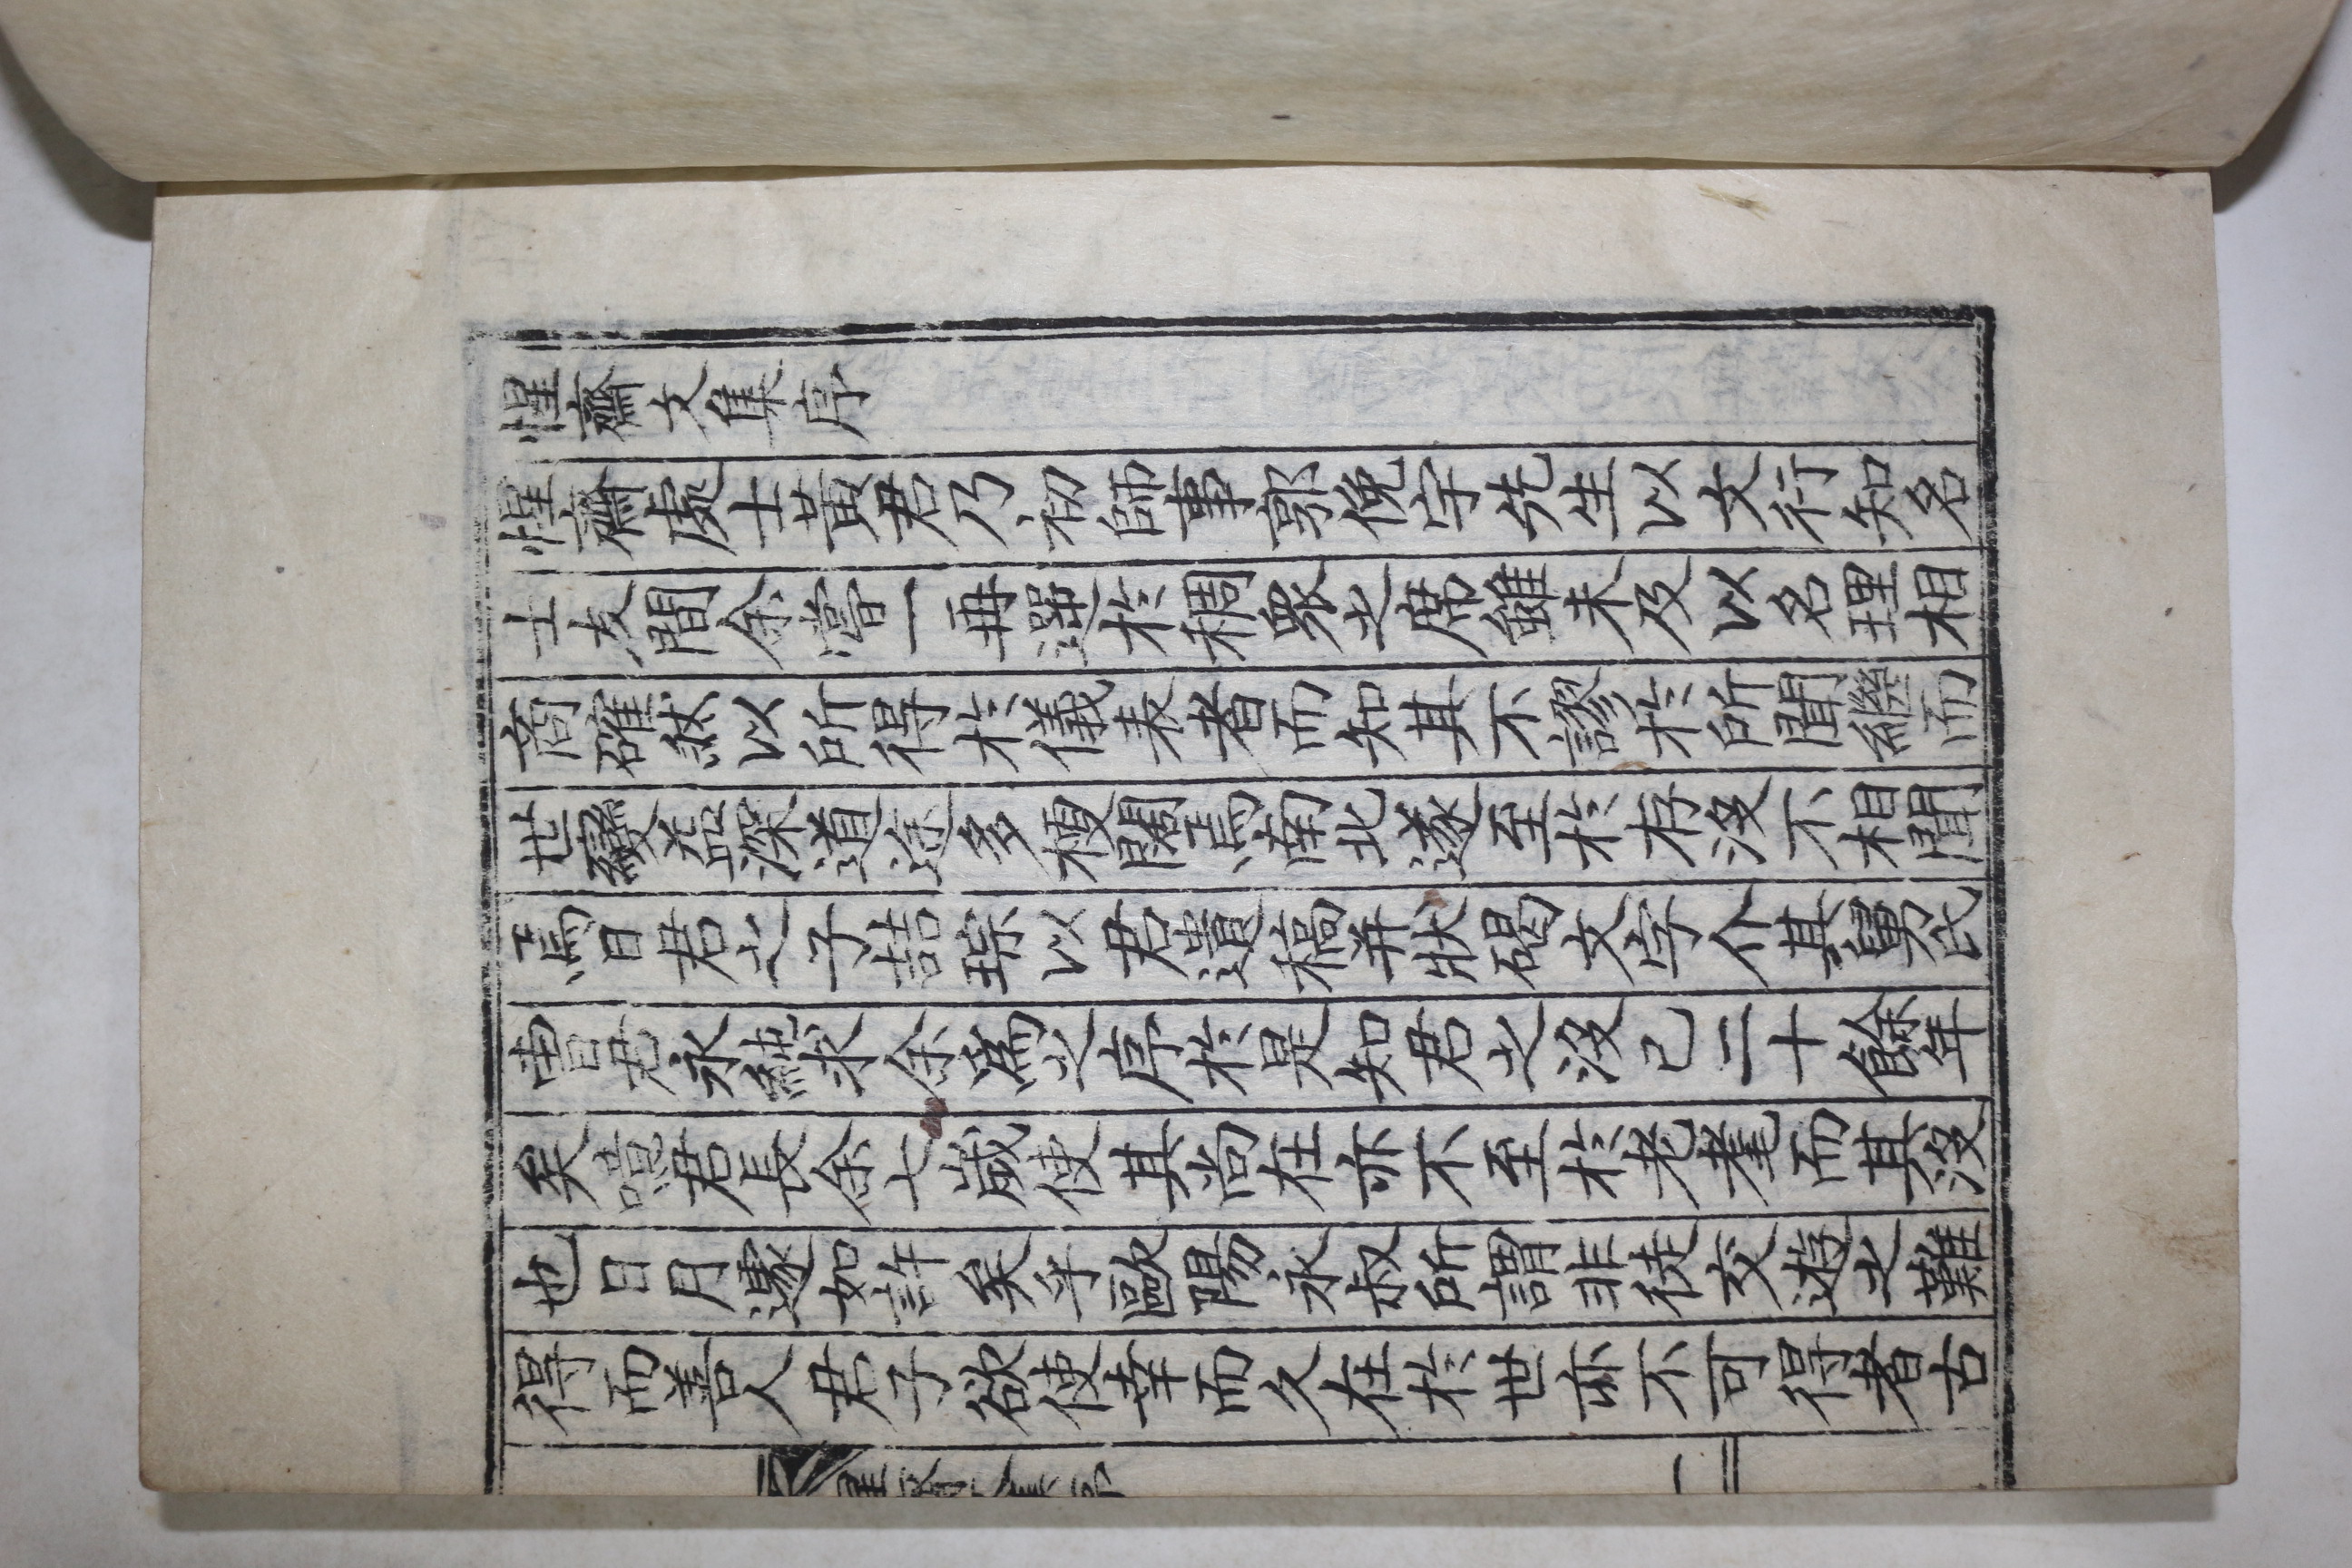 惺齋文集序
惺齋處士黃君乃初師事郭俛宇先生以文行知名
士友間余嘗一再遌於稠衆之席雖未及以名理相
商確然以所得於儀表者而知其不謬於所聞繼而
世變益深道途多梗闊焉南北遂至於存沒不相聞
焉日君之子喆琮以君遺稿并狀碣文字介其舅氏
曺君永求余爲之序於是知君之沒已二十餘年
矣噫君長余七歲使其尙在亦不至於老耄而其沒
也日月遽如許矣乎歐陽永叔所謂非徒交遊之難
得而善人君子欲使幸而久在於世亦不可得者古